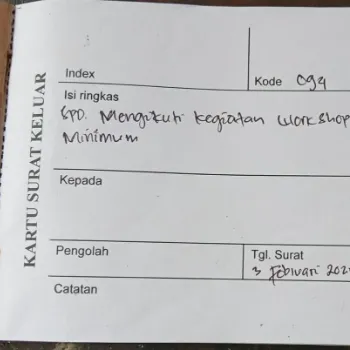 KARTU SURAT KELUAR
Index
Kode 094
Isi ringkas
SPD. Mengikuti kegiatan workshop
Minimum
Kepada
Pengolah
Tgl. Surat
3 Februari 202
Catatan